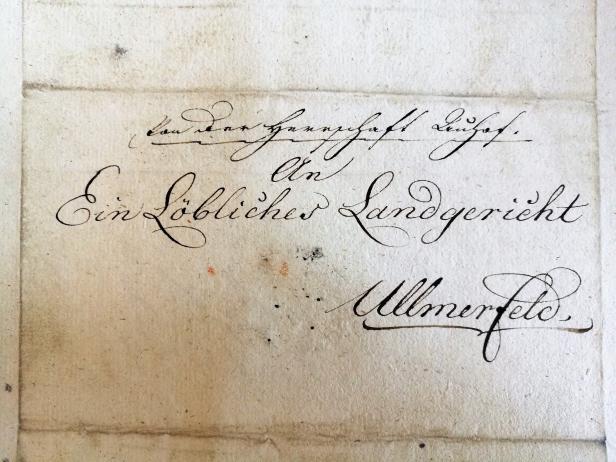 Von der Herrschaft Auhof.
An
Ein Löbliches Landgericht
Ullmerfeld.